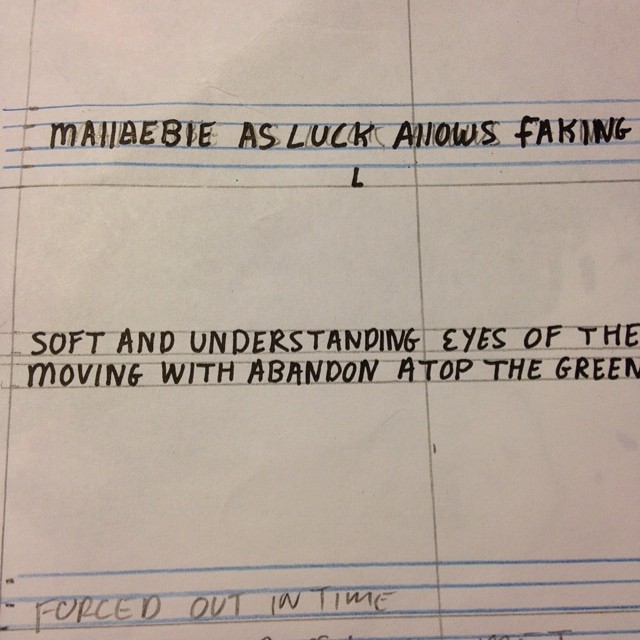 MAllAEBIE AS LUCK AllOWS FAKING
L
SOFT AND UNDERSTANDING EYES OF THE
MOVING WITH ABANDON ATOP THE GREEN
FORCED OUT IN TIME